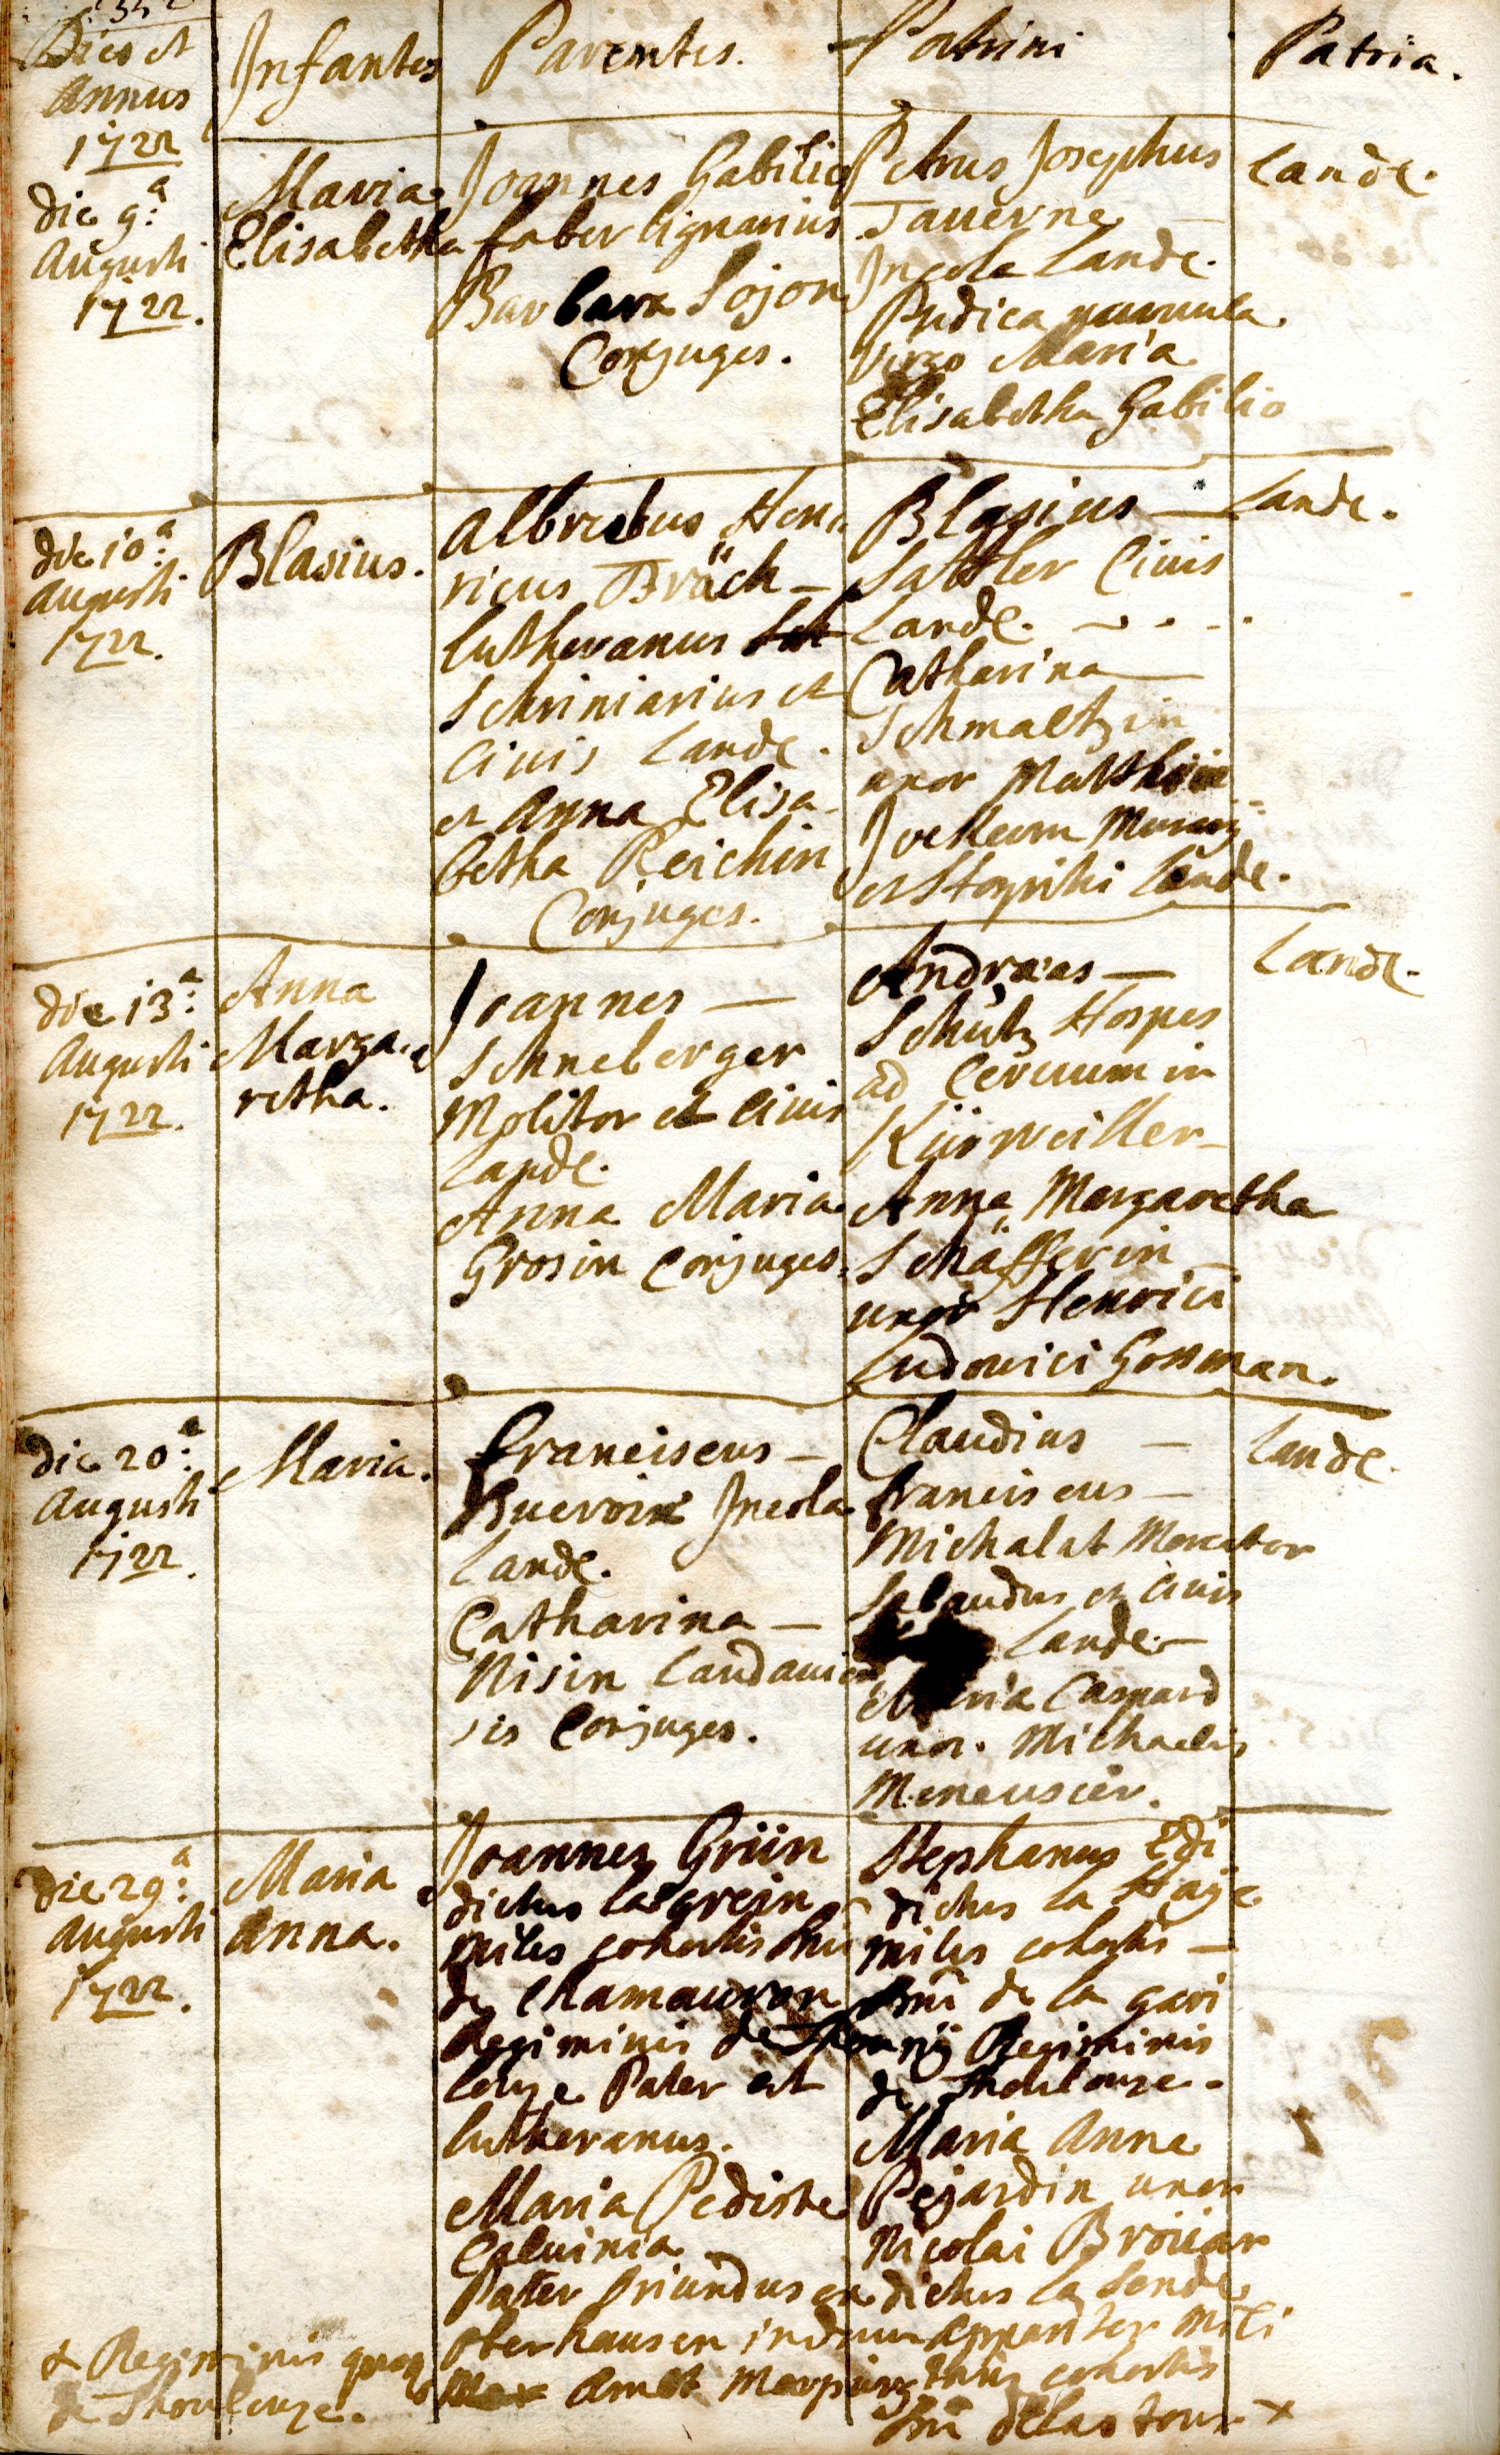 Dies et
Annus
1722
Infantes
Parentes.
Patrini
Patria.
die 9.a
Augusti
1722.
Maria
Elisabetha
Joannes Gabilio
faber lignarius
Barbara Sojon
Conjuges.
Petrus Josephus
Tauerne
Incola Lande.
Pudica
Virgo Maria
Elisabetha Gabilio
Lande.
die 10.a
Augusti
1722.
Blasius.
Albrectus Hen-
ricus Bräch
Lutheranus
Schriniarius et
Civis Lande.
et Anna Elisa-
betha Reichin
Conjuges.
Blasius
Sattler Civis
Lande.
Catharina
Schmaltzin
uxor Matthiæ
et Hospitis Lande.
Lande.
die 13.a
Augusti
1722.
Anna
Marga-
retha.
Joannes
Schneberger
Molitor et Civis
Lande.
Anna Maria
Grosin Conjuges.
Andræas
Schütz Hospes
ad Cervum in
Kürweiller
Anna Margaretha
Schäfferin
uxor Henrici
Ludovici Gossman.
Lande.
die 20.a
Augusti
1722.
Maria.
Franciscus
Incola
Lande.
Catharina
Nisin Landavien
sis Conjuges.
Claudius
franciscus
Michalat Mercator
Sabaudus et Civis
Lande.
Maria Caspard
uxor. Michaelis
Meneusier.
Lande.
die 29.a
Augusti
1722.
Maria
Anna.
Joannes Grün
dictus la grein
miles cohortis Dni
de Chamauron
Regiminis de Thou
louze Pater est
Lutheranus.
Maria Pediste
Calvinia
Pater oriundus ex
oberhausen in
Amdt
Stephanus Edi
dictus la Haÿe
miles cohortis
Dni de la gari
Regiminis
de Thoulouze.
Maria Anna
Pejardin uxor
Nicolai Broüar
dictus la Lende
Mili
cohortis
Dni de las tour +
+ Regiminis quoq
de Thoulouze.